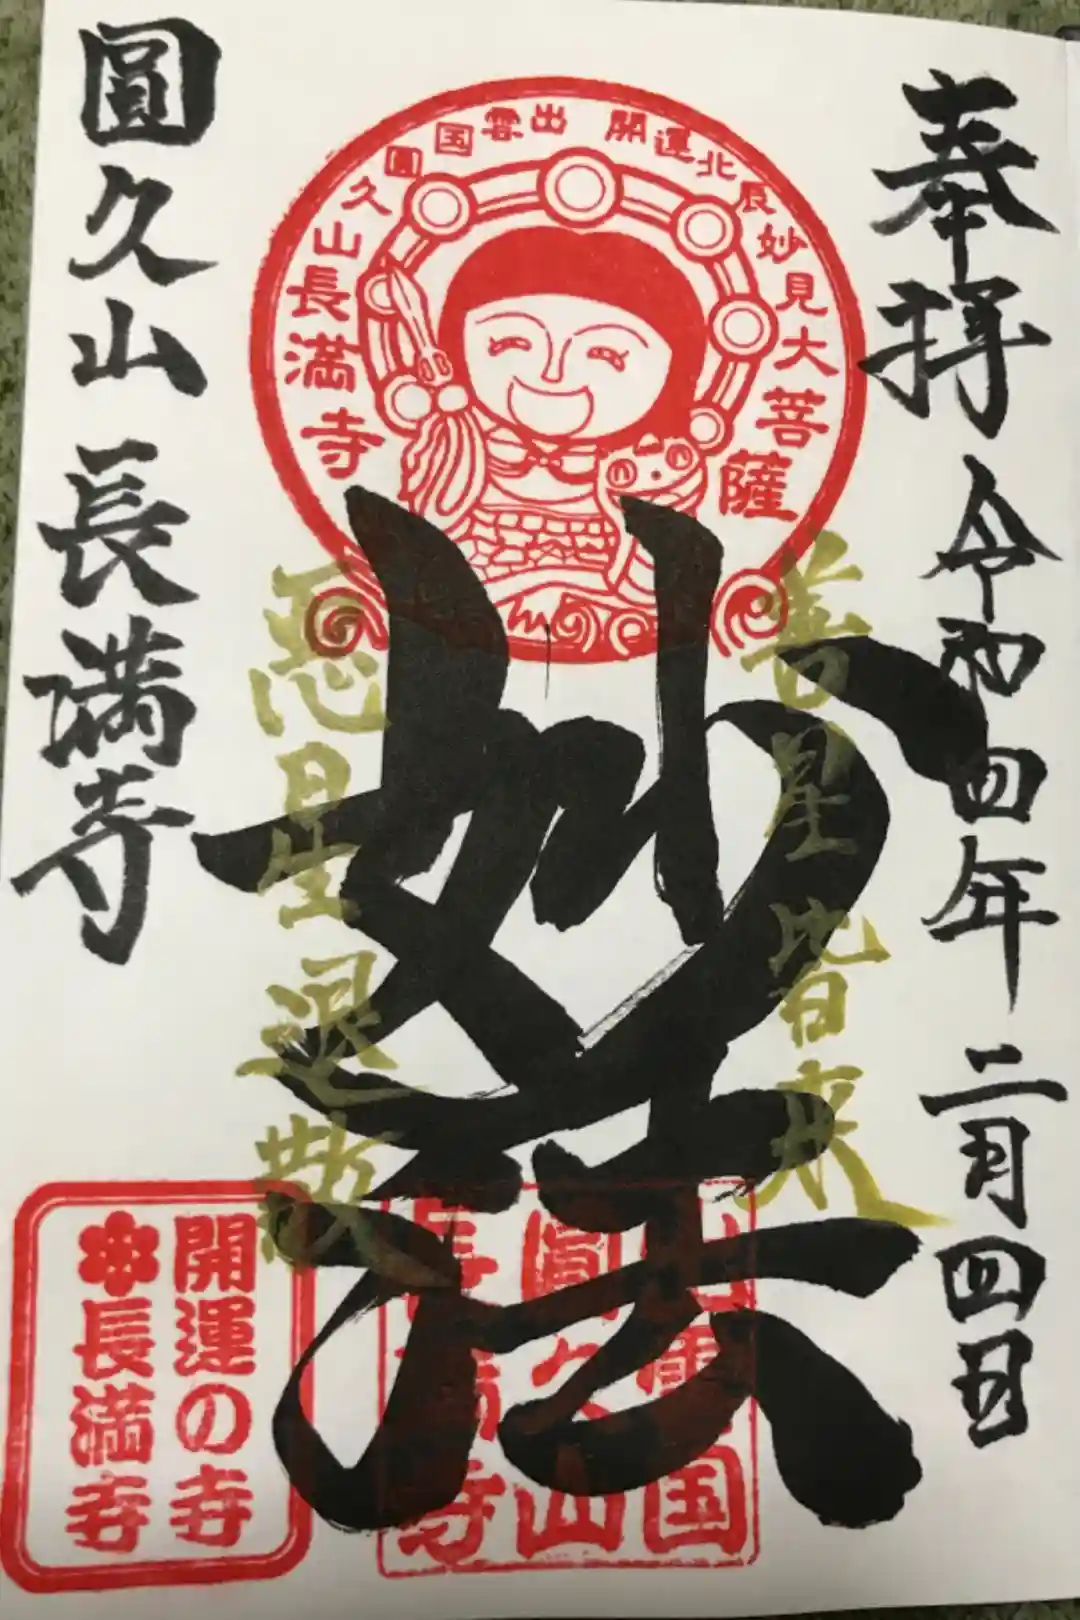 奉拝 令和四年 二月四日
開運北辰妙見大菩薩
出雲国圓久山長満寺
善星皆来
妙法
悪星退散
出雲国
圓久山
長満寺
圓久山 長満寺
開運の寺
長満寺